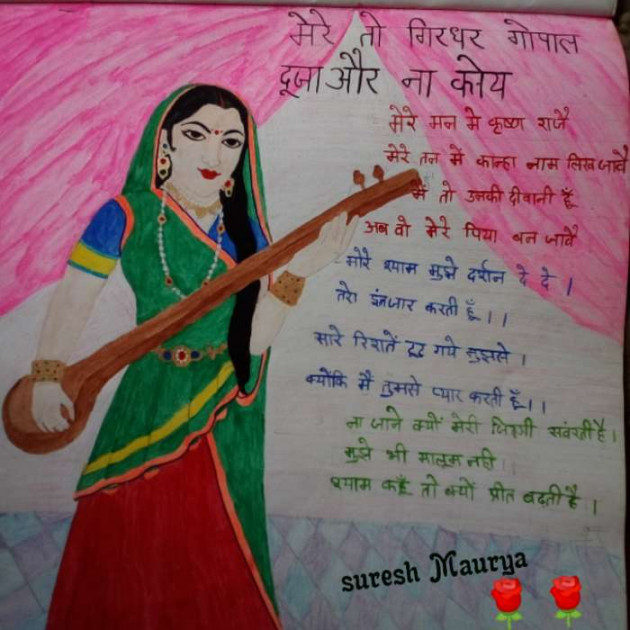 मेरे तो गिरधर गोपाल
दूजा और ना कोय
मेरे मन मे कृष्ण राजै
मेरे तन में कान्हा नाम लिख जावै
मैं तो उनकी दीवानी हूँ
अब वो मेरे पिया बन जावै
मोरे श्याम मुझे दर्शन दे दे ।
तेरा इंतजार करती हूँ ।।
सारे रिशतें टूट गये मुझसे ।
क्योंकि मैं तुमसे प्यार करती हूँ ।।
ना जाने क्यों मेरी जिंदगी संवरती है ।
मुझे भी मालूम नही ।
श्याम कहूँ तो क्यों प्रीत बढ़ती है ।
suresh Maurya